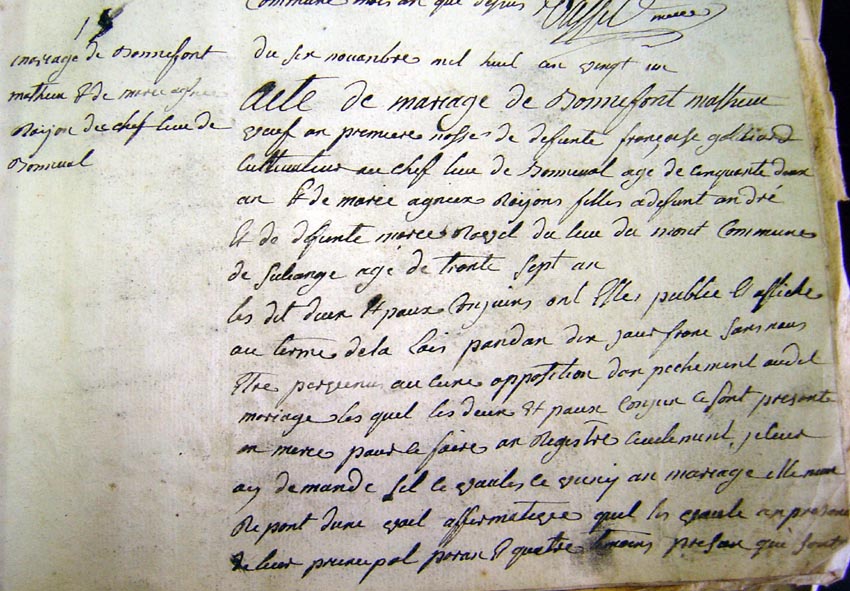 Commune mois an que depus
Vassel maire
18
mariage de Bonnefont
matheux & de marie agnes
Roijon du chef lieu de
Bonneval
du six novanbre mil huil an vingt un
Acte de mariage de Bonnefont matheux
veuf an premiere nosse de defunte françoise galliard
Cultivateur au chef lieu de Bonneval age de cinquante deux
an & de marie agneux Roijons filles a defunt andré
Et de defunte marie Rovel du lieu du mont Commune
de saliange age de trante sept an
les dit deux Et paux Conjuins ont Estes publie & affiche
au terme de la lois pandan dix jour frans sans nous
Etre parvenus aucune opposition d'an pechement audit
mariage les quel les deux Et paux Conjux ce sont presante
an merie pour ce faire an Registre civilement, je leur
ay demande sil ce voules ce unir an mariage elle nous
Repont d'une voix affirmatique quel les vaule an presance
de leur principal paran & quatre temoins presan que sont